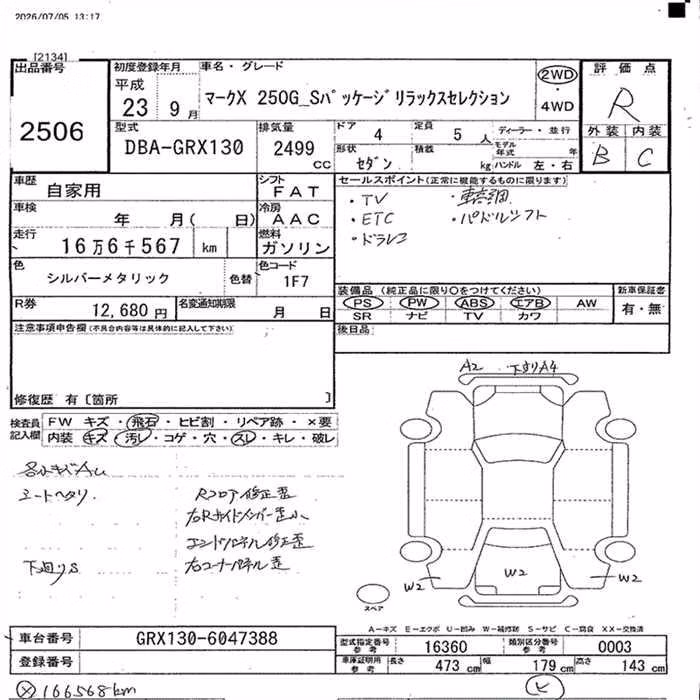 2026/07/05 13:17
[2134]
出品番号
2506
初度登録年月
平成
23 9月
車名・グレード
マークX 250G_Sパッケージリラックスセレクション
2WD
・
4WD
評価点
R
外装 内装
B C
型式
DBA-GRX130
排気量
2499 CC
ドア 4
定員 5人
ディーラー・並行
モデル年式 年
形状 セダン
積載 kg
ハンドル 左・右
車歴
自家用
シフト
FAT
車検
年 月( 日)
冷房
AAC
走行
16万6千567 km
燃料
ガソリン
色
シルバーメタリック
色替
色コード
1F7
R券
12,680円
名変通知期限
月 日
セールスポイント(正常に機能するものに限ります)
・TV
・ETC ・パドルシフト
・ドラレコ
装備品 (純正品に限り○をつけてください)
新車保証書
PS PW ABS エアB AW
SR ナビ TV カワ
有・無
後日品
注意事項申告欄(不具合内容等は具体的に記入して下さい)
修復歴 有〔箇所 〕
検査員記入欄
FW キズ・飛石・ヒビ割・リペア跡・×要
内装 キズ・汚レ・コゲ・穴・スレ・キレ・破レ
A2 下回りA4
シートヘタリ
Rフロア修正歪
右Rサイドメンバー歪小
エンドパネル修正歪
下廻りS
右コーナーパネル歪
W2 W2 W2
スペア
A−キズ E−エクボ U−凹み W−補修跡 S−サビ C−腐食 XX−交換済
車台番号
GRX130-6047388
登録番号
型式指定番号参考
16360
類別区分番号参考
0003
車庫証明用参考
長さ 473 cm
幅 179 cm
高さ 143 cm
166568km